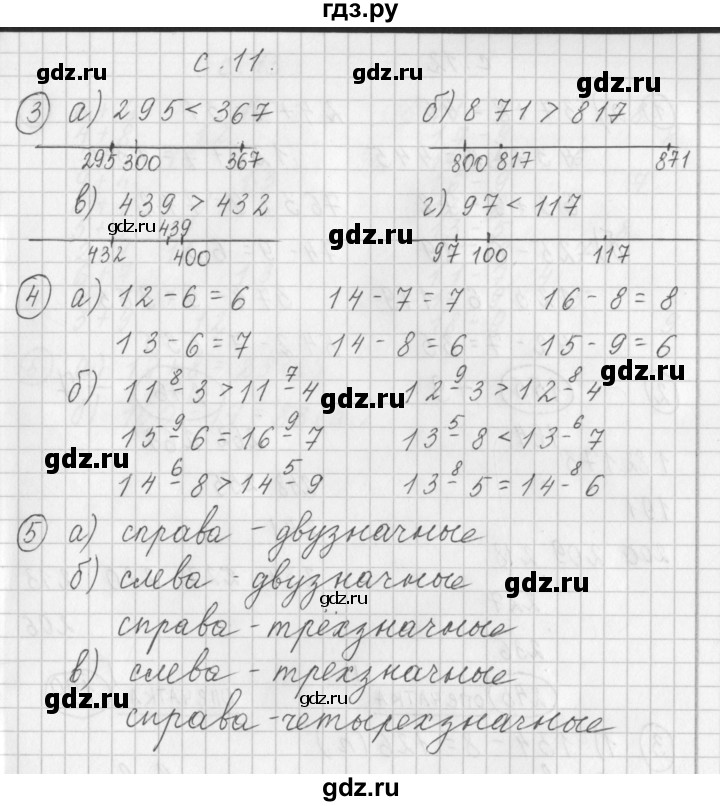 гдз.ру
с. 11.
gdz.ru gdz.ru gdz.ru
3 а) 295 < 367 б) 871 > 817
295 300 367 800 817 871
в) 439 > 432 г) 97 < 117
gdz.ru 439 gdz.ru
432 400 97 100 117
4 а) 12 - 6 = 6 14 - 7 = 7 16 - 8 = 8
13 - 6 = 7 14 - 8 = 6 15 - 9 = 6
gdz.ru
8 7 9 8
б) 11 - 3 > 11 - 4 12 - 3 > 12 - 4
gdz.ru
9 9 5 6
15 - 6 = 16 - 7 13 - 8 < 13 - 7
gdz.ru
6 5 8 8
14 - 8 > 14 - 9 13 - 5 = 14 - 6
5 а) справа - двузначные
б) слева - двузначные
gdz.ru gdz.ru
справа - трёхзначные
в) слева - трехзначные
gdz.ru gdz.ru gdz.ru
справа - четырехзначные
gdz.ru